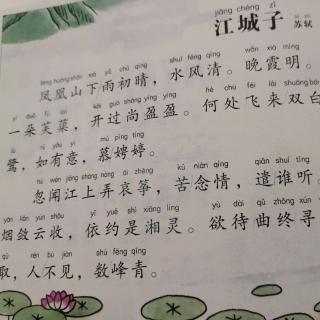 jiāng chéng zǐ
江城子 苏轼
fèng huáng shān xià yǔ chū qíng shuǐ fēng qīng wǎn xiá míng
凤凰山下雨初晴，水风清。晚霞明。
yì duǒ fú kāi guò shàng yíng yíng hé chù fēi lái shuāng
一朵芙蕖，开过尚盈盈。何处飞来双白
lù rú yǒu yì mù pīng tíng
鹭，如有意，慕娉婷。
hū wén jiāng shàng nòng āi zhēng kǔ niàn qíng qiǎn shuí tīng
忽闻江上弄哀筝，苦念情，遣谁听。
yān liǎn yún shōu yī yuē shì xiāng líng yù dài qǔ zhōng xún
烟敛云收，依约是湘灵。欲待曲终寻
qǔ rén bú jiàn shù fēng qīng
取，人不见，数峰青。